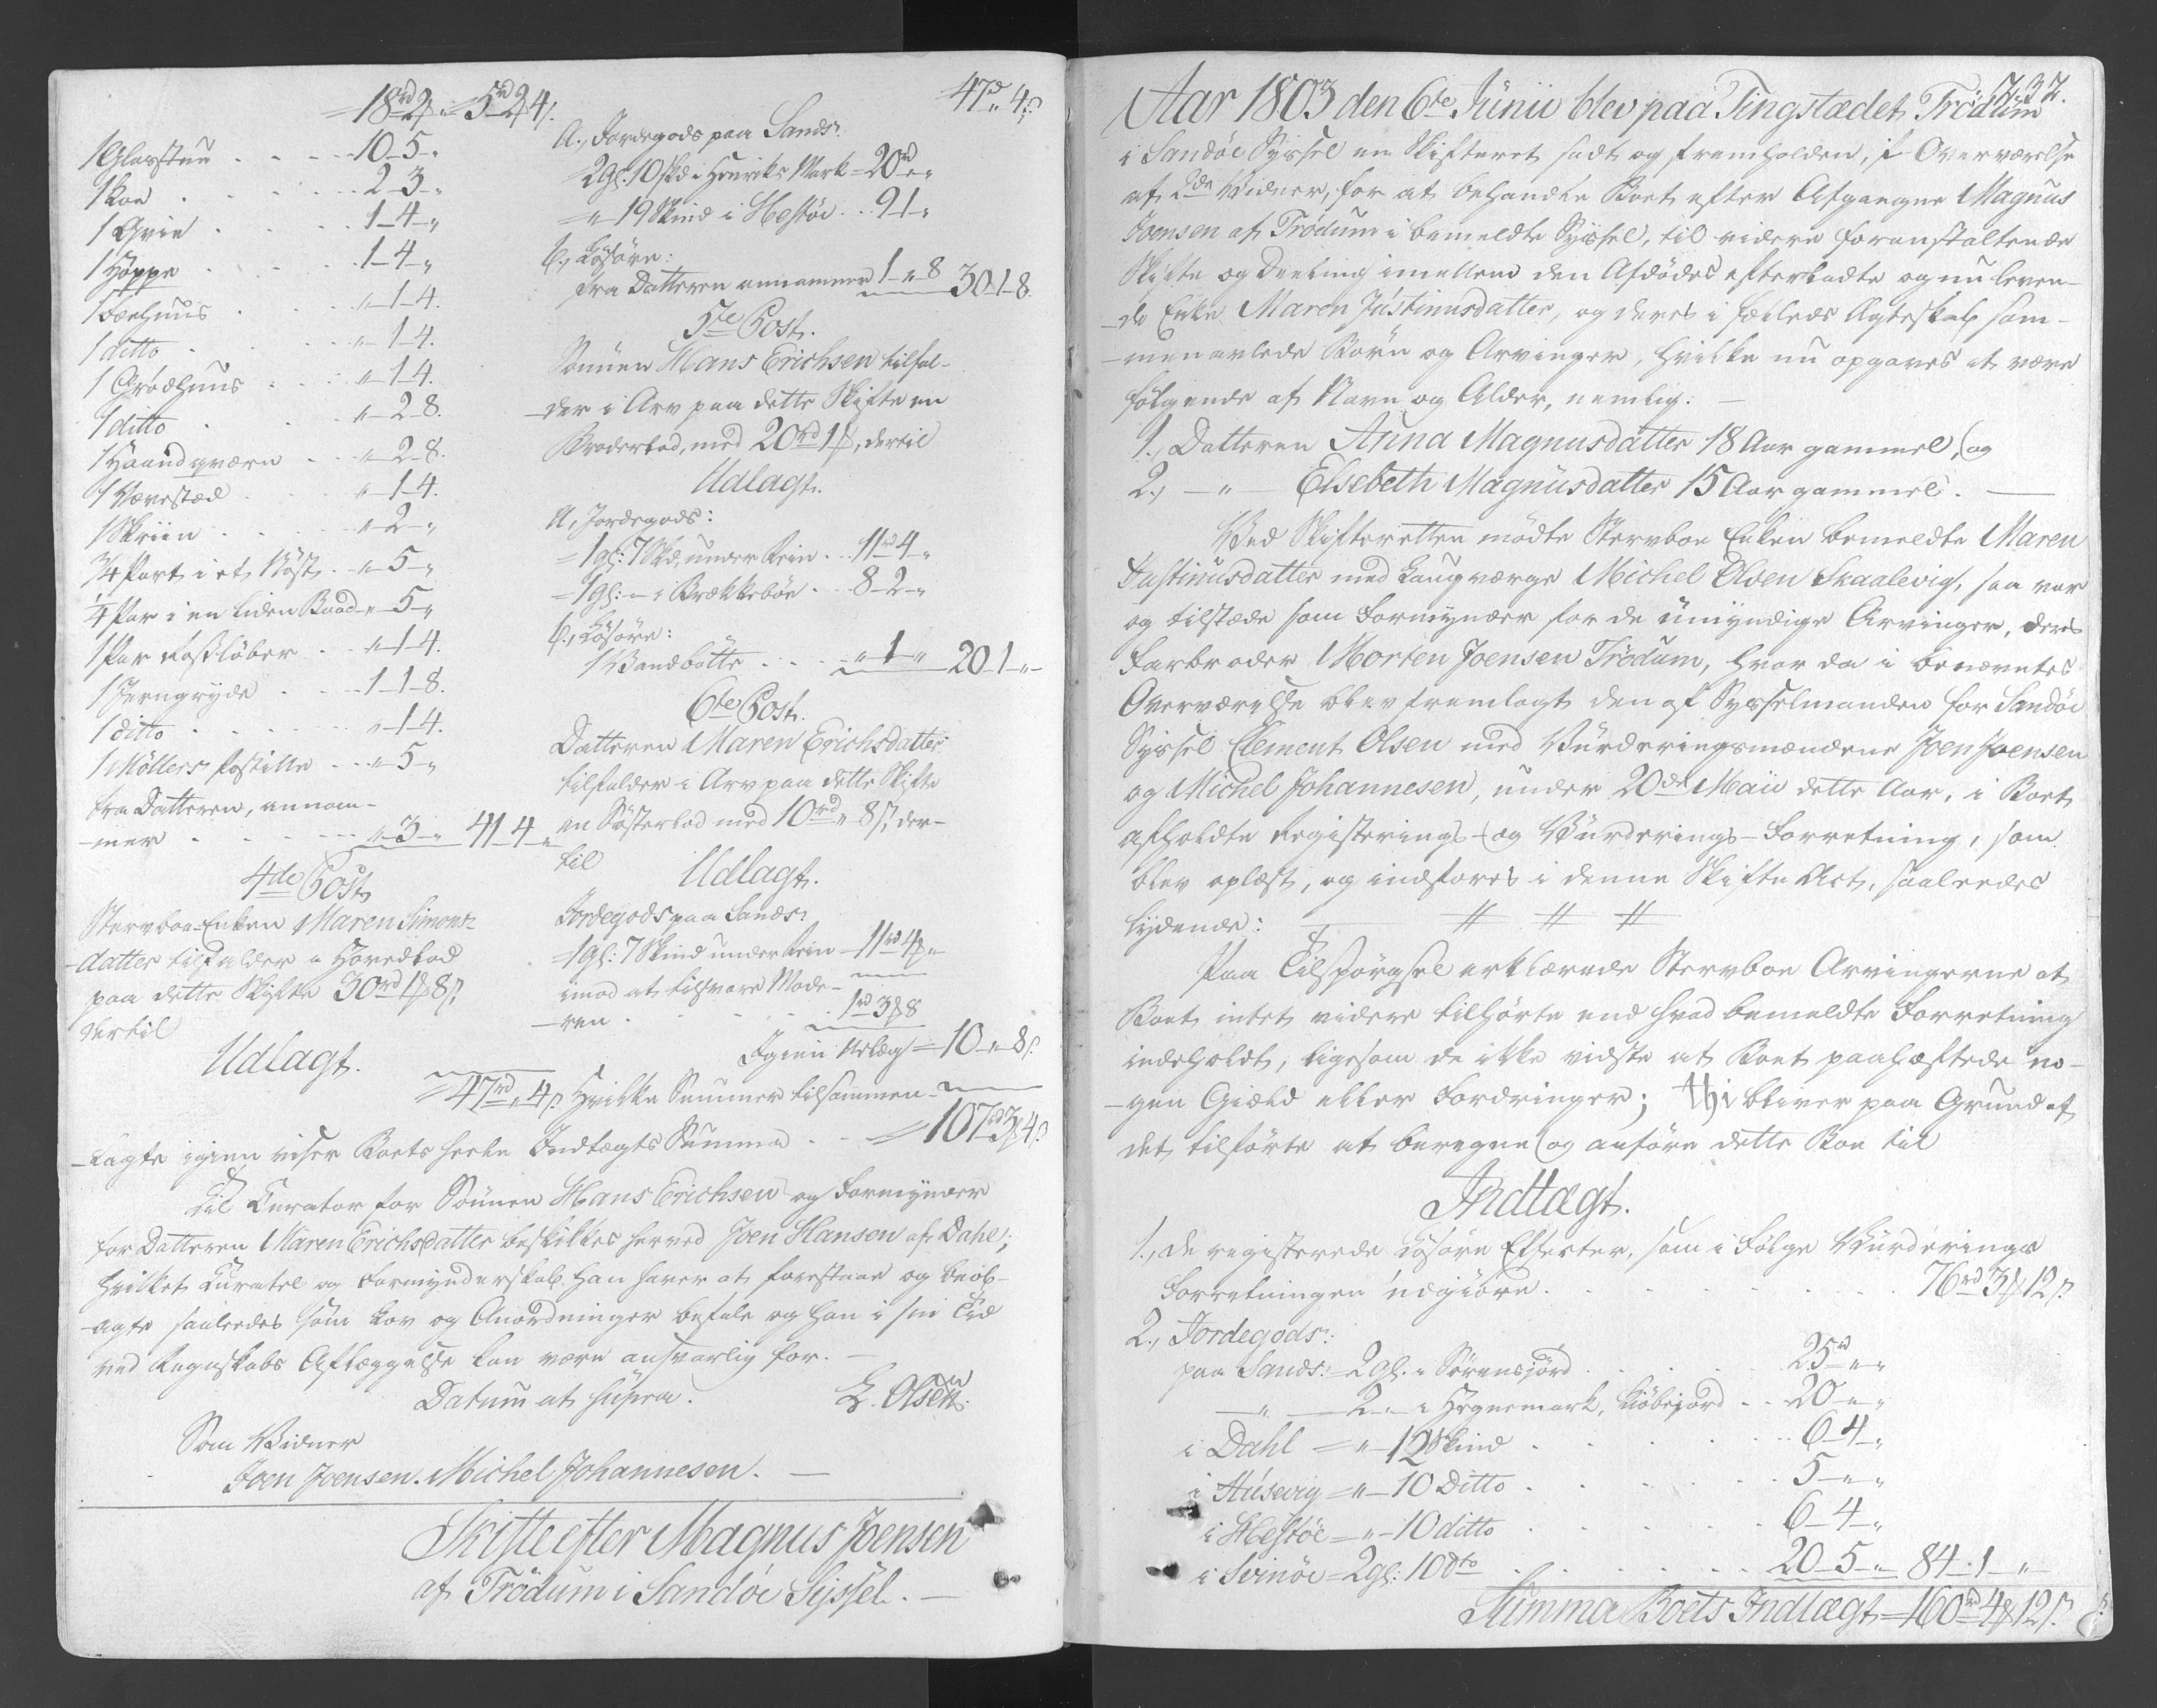 18rd 2ß „ 5rd 2ß 4.
1 Glasstue . . . 10-5-„
1 Koe . . . 2-3-„
1 Qvie . . . 1-4-„
1 Hoppe . . . 1-4-„
1 Foehuus . . . „-1-4.
1 ditto . . . „-1-4.
1 Grødhuus . . . „-1-4.
1 ditto . . . „-2-8.
1 Haandqværn . . . „-2-8.
1 Vævestæd . . . „-1-4.
1 Skriin . . . „-2-„
3/4 Part i et Nøst . . „-5-„
1/4 Par i en liden Baad „-5-„
1 Par Roßløber . . „-1-4.
1 Jerngryde . . . 1-1-8.
1 ditto . . . „-1-4.
1 Møllers Postille . . . „-5-„
fra Datteren, annam-
-mer . . . „-3-„ 41-4-„
4de Post
Stervboe-Enken Maren Simons-
-datter tilfalder a Hovedlod
paa dette Skifte 30rd 1ß 8ſ.
dertil
Udlagt.
47d „ 4ſ.
A., Jordegods paa Sands:
2gl. 10 skd i Henriks Mark = 20rd „-„
= „-19 Skind i Hestøe . . 9-1-„
b., Løsøre:
fra Datteren annammer 1-„-8 30-1-8.
5te Post.
Sønnen Hans Erichsen tilfal-
-der i Arv paa dette Skifte en
Broderlod, med 20rd 1ß, dertil
Udlagt.
A, Jordegods:
= 1gl: 7 Skd, under Rein . . 11rd 4-„
= 1gl: - i Brækkebøe . . 8-2-„
b., Løsøre:
1 Vandbøtte . . . „-1-„ 20-1-„-
6te Post.
Datteren Maren Erichsdatter
tilfalder i Arv paa dette Skifte
en Søsterlod med 10rd „ 8ſ, der-
til Udlagt.
Jordegods paa Sands:
= 1gl: 7 Skind under Rein = 11rd 4ß „
imod at tilsvare Mode-
-ren . . . 1rd 3ß 8
Igien Udlæg = 10-„-8ſ.
= 47rd „ 4ſ. Hvilke Summer tilsammen-
-lagte igien viser Boets heele Indtægts Summa . . = 107rd 3ß 4ſ.
Til Curator for Sønnen Hans Erichsen og Formynder
for Datteren Maren Erichsdatter beskikkes herved Joen Hansen af Dahl;
hvilket Curatel og Formynderskab han haver at forestaae og beob-
-agte saaledes som Lov og Anordninger befale og han i sin Tid
ved Regnskabs Aflæggelse kan være ansvarlig for. —
Datum ut supra. E. Olsen.
Som Vidner
Joen Joensen. Michel Johannesen. —
Skifte efter Magnus Joensen
af Trödum i Sandöe Syssel. —
737.
Aar 1803 den 6te Junii blev paa Tingstædet Trödum
i Sandöe Syssel en Skifteret sadt og fremholden, i Overværelse
af 2de Vidner, for at behandle Boet efter Afgangne Magnus
Joensen af Trödum i bemeldte Syssel, til videre foranstaltende
Skifte og Deeling imellem den Afdødes efterladte og nu leven-
-de Enke Maren Justinusdatter, og deres i fælleds Ægteskab sam-
-menavlede Børn og Arvinger, hvilke nu opgaves at være
følgende af Navn og Alder, nemlig: —
1., Datteren Anna Magnusdatter 18 Aar gammel, og
2., — „ — Elsebeth Magnusdatter 15 Aar gammel. —
Ved Skifteretten mødte Stervboe Enken bemeldte Maren
Justinusdatter med Laugværge Michel Olsen Skaalevig, saa var
og tilstæde som Formynder for de umyndige Arvinger, deres
Farbroder Morten Joensen Trödum, hvor da i benævntes
Overværelse blev fremlagt den af Sysselmanden for Sandöe
Syssel Clement Olsen med Vurderingsmændene Joen Joensen
og Michel Johannesen, under 20de Maii dette Aar, i Boet
afholdte Registerings- og Vurderings-Forretning, som
blev oplæst, og indføres i denne Skifte Act, saaledes
lydende: — # # #
Paa Tilspørgsel erklærede Stervboe Arvingerne at
Boet intet videre tilhørte end hvad bemeldte Forretning
indeholdt, ligesom de ikke vidste at Boet paahæftede no-
-gen Gield eller Fordringer; thi bliver paa Grund af
det tilførte at beregne og anføre dette Boe til
Indtægt.
1., de registerede Løsøre Effecter, som i Følge Vurderings
Forretningen udgiøre . . . 76rd 3ß 12ſ
2., Jordegods:
paa Sands: = 2gl. i Sørensjord . . . 25rd „-„
— „ — 2-„- i Hegnemark, Kiøbejord . . 20-„-„
i Dahl = „-12 Skind . . . 6-4-„
i Húsevig = „-10 Ditto . . . 5-„-„
i Hestöe = „-10 ditto . . . 6-4-„
i Svinöe = 2gl: 10 dto . . . 20-5-„ 84-1-„-
Summa Boets Indtægt = 160rd 4ß 12ſ.